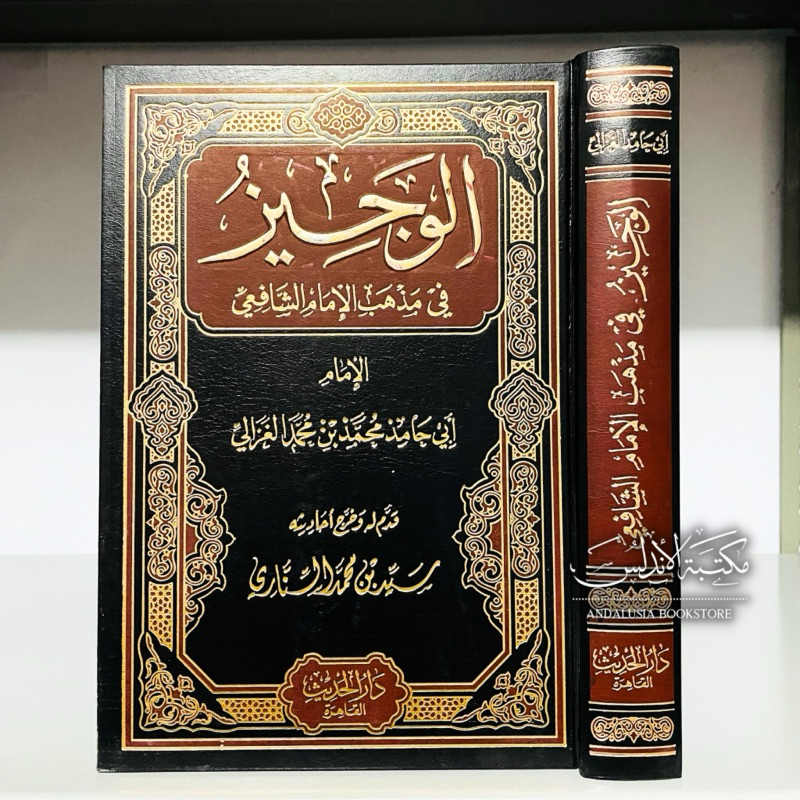 الوجيز
في مذهب الإمام الشافعي
الإمام
أبي حامد محمد بن محمد الغزالي
قدم له وخرج أحاديثه
سيد بن محمد السناري
دار الحديث
القاهرة
أبي حامد الغزالي
الوجيز في مذهب الإمام الشافعي
مكتبة الأندلس
ANDALUSIA BOOKSTORE
دار الحديث
القاهرة